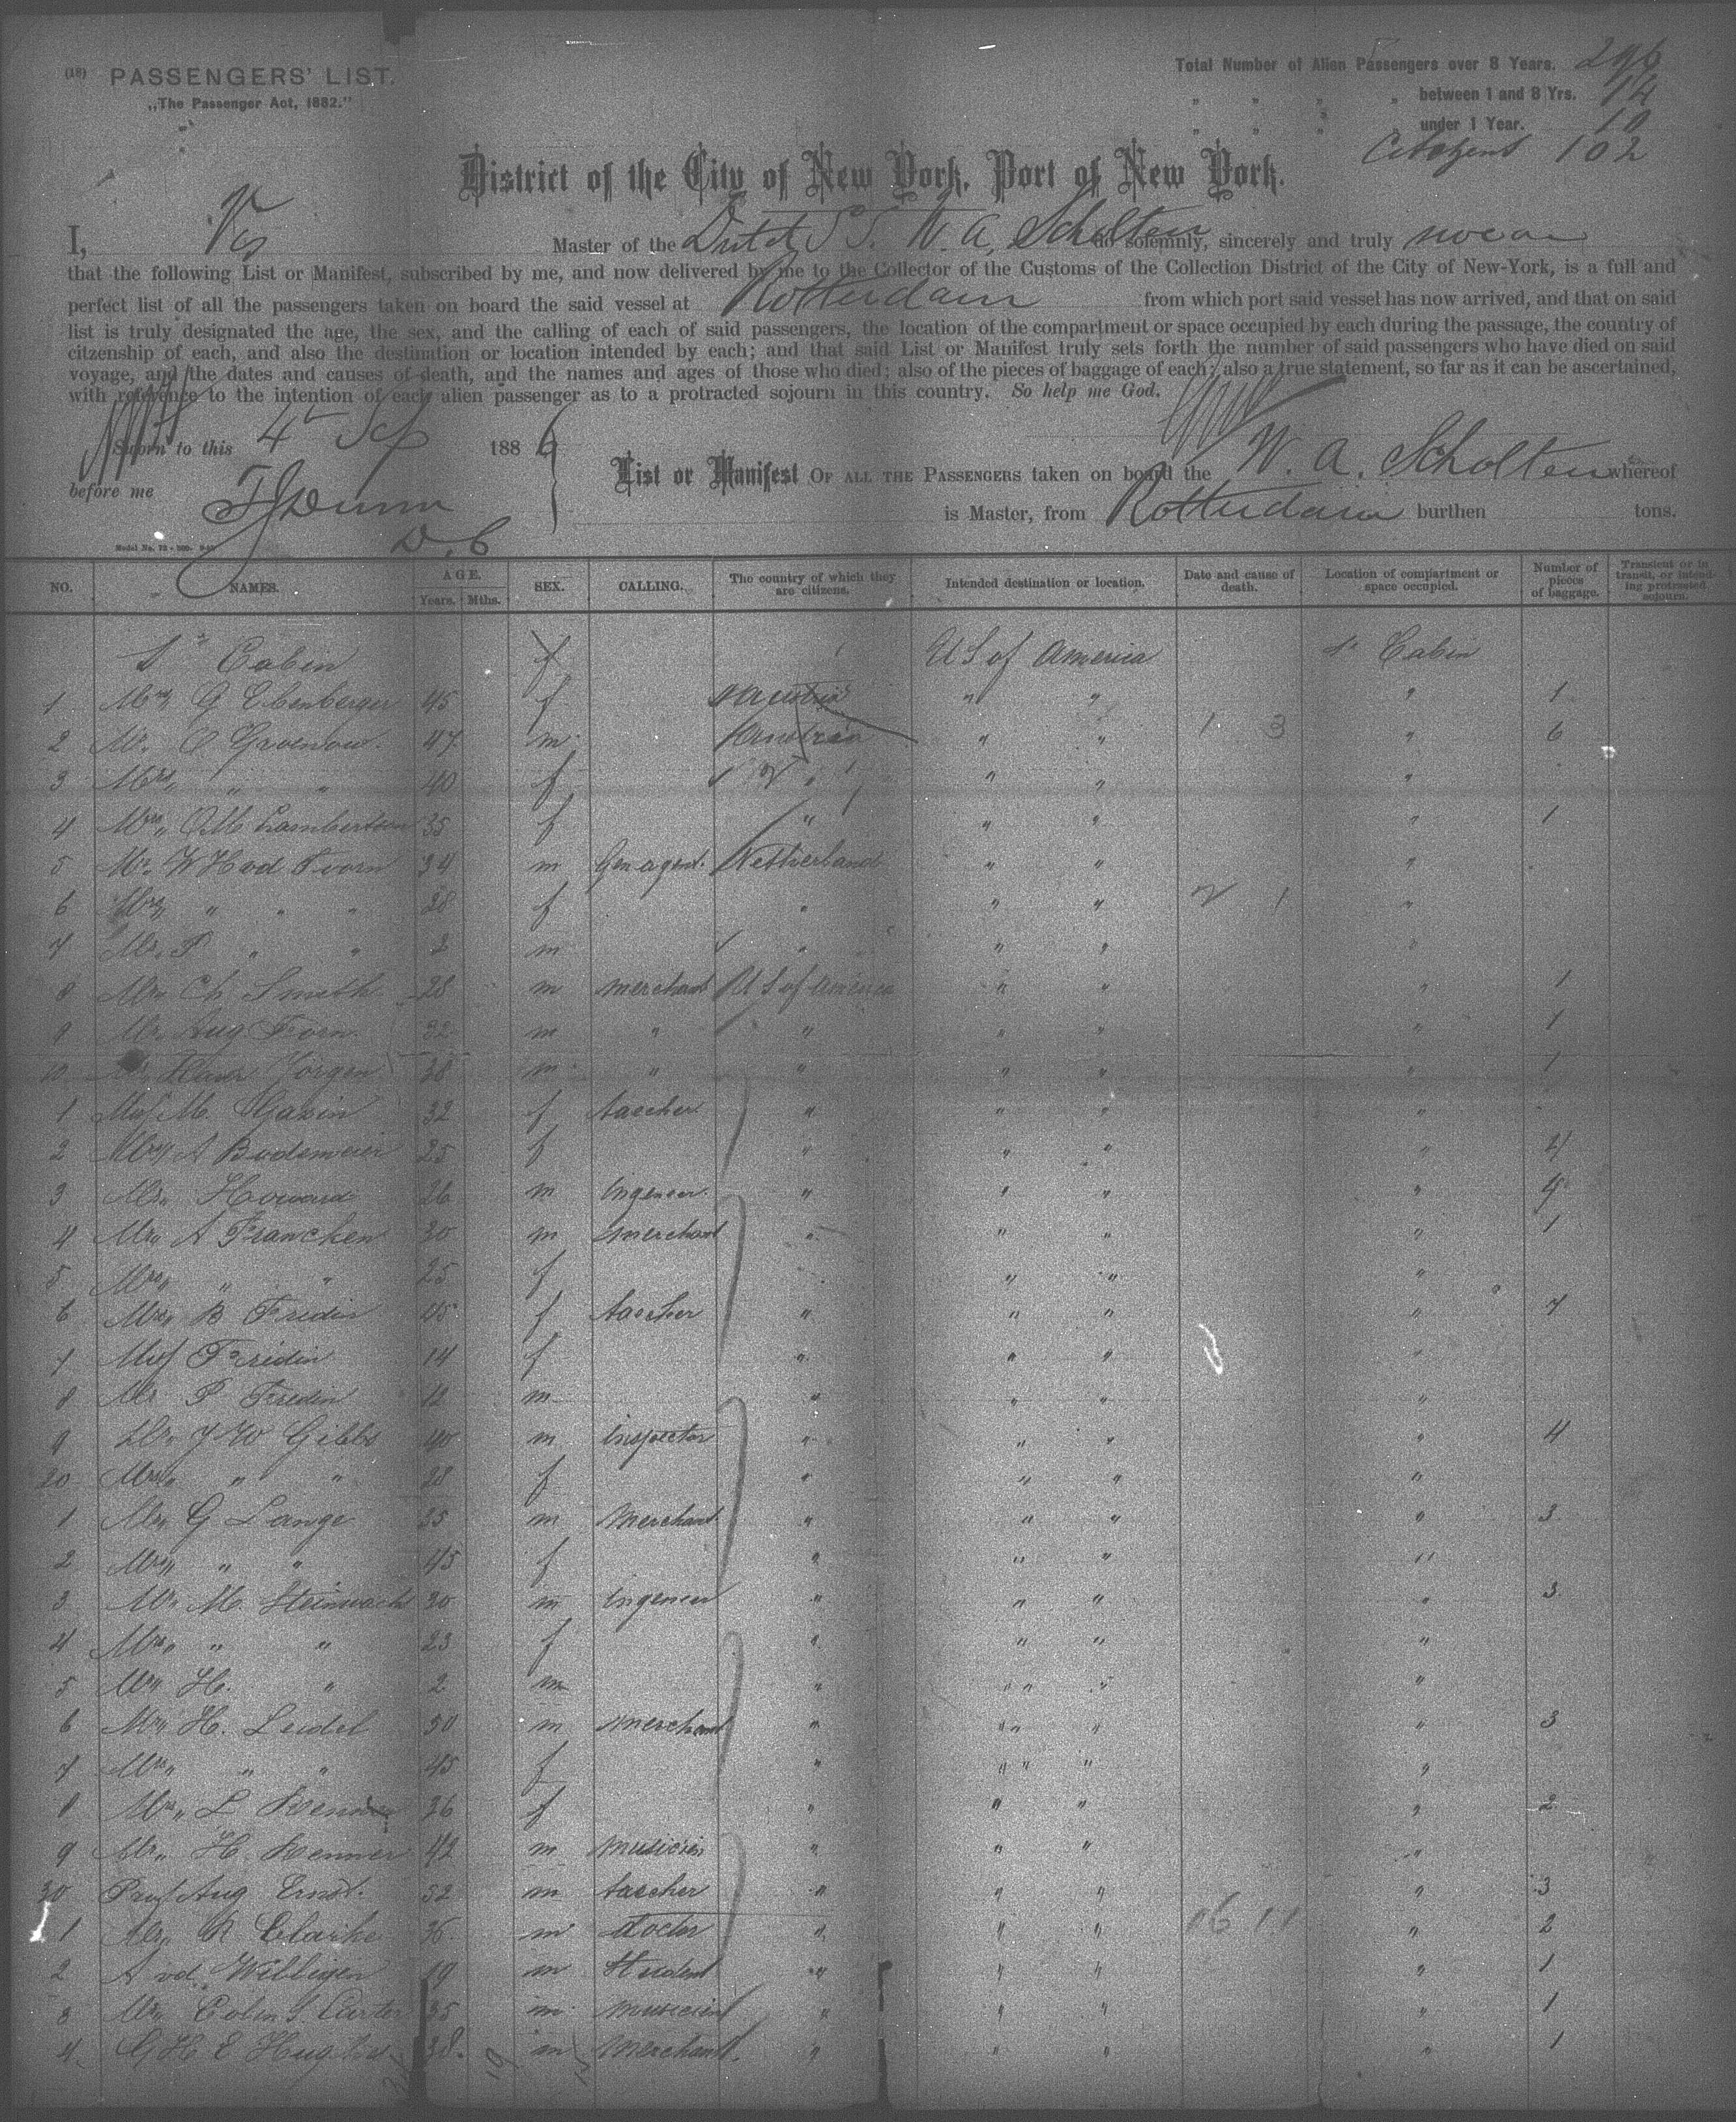 (18) PASSENGERS' LIST.
„The Passenger Act, 1882."
Total Number of Alien Passengers over 8 Years. 296
„ „ „ „ between 1 and 8 Yrs. 14
„ „ „ „ under 1 Year. 10
Citizens 102
District of the City of New York, Port of New York.
I, Vis Master of the Dutch S S. W. A. Scholten do solemnly, sincerely and truly swear
that the following List or Manifest, subscribed by me, and now delivered by me to the Collector of the Customs of the Collection District of the City of New-York, is a full and
perfect list of all the passengers taken on board the said vessel at Rotterdam from which port said vessel has now arrived, and that on said
list is truly designated the age, the sex, and the calling of each of said passengers, the location of the compartment or space occupied by each during the passage, the country of
citzenship of each, and also the destination or location intended by each; and that said List or Manifest truly sets forth the number of said passengers who have died on said
voyage, and the dates and causes of death, and the names and ages of those who died; also of the pieces of baggage of each; also a true statement, so far as it can be ascertained,
with reference to the intention of each alien passenger as to a protracted sojourn in this country. So help me God.
Sworn to this 4th Sep 1886
before me F J Dunn
D. C
List or Manifest OF ALL THE PASSENGERS taken on board the W. A. Scholten whereof
is Master, from Rotterdam burthen tons.
NO. NAMES. AGE. Years. Mths. SEX. CALLING. The country of which they are citizens. Intended destination or location. Date and cause of death. Location of compartment or space occupied. Number of pieces of baggage. Transient or in transit, or intending protracted sojourn.
Cabin f U S of America Cabin
1 Mrs G Ebenberger 45 f Austria „ „ „ 1
2 Mr. O Gruenow. 47 m Austria „ „ 1 3 „ 6
3 Mrs „ „ 40 f „ „ „ „
4 Mrs, O M Lambertson 35 f „ „ „ „ 1
5 Mr. W H vd Toorn 34 m Gen agent. Netherland „ „ „
6 Mrs „ „ „ 28 f „ „ „ „
7 Mr. P „ „ 2 m „ „ „ „
8 Mr. Ch Smith 28 m merchant U S of America „ „ „ 1
9 Mr. Aug Forn. 32 m „ „ „ „ „ 1
10 Jörgen 38 m „ „ „ „ „ 1
1 Miss M. 32 f teacher „ „ „ „
2 Mrs A Bademeier 25 f „ „ „ „ 4
3 Mr. Howard 26 m Ingeneer. „ „ „ „ 4
4 Mr. A Francken 30 m merchant „ „ „ „ 1
5 Mrs „ „ 25 f „ „ „ „
6 Mrs B Fridin 45 f teacher „ „ „ „ 7
7 Miss Fridin 14 f „ „ „ „
8 Mr. P Fridin 12 m „ „ „ „
9 Dr. J W Gibbs 40 m Inspector „ „ „ „ 4
20 Mrs. „ „ 28 f „ „ „ „
1 Mr. G Lange 35 m Merchant „ „ „ „ 3
2 Mrs „ „ 45 f „ „ „ „
3 Mr. M. Steinwachs 30 m Ingeneer „ „ „ „ 3
4 Mrs „ „ 23 f „ „ „ „
5 Mr H. „ 2 m „ „ „ „
6 Mr H. Leidel 50 m merchant „ „ „ „ 3
7 Mrs „ „ 45 f „ „ „ „
8 Mrs. L Renner 36 f „ „ „ „ 2
9 Mr. H. Renner 42 m musician „ „ „ „
30 Prof Aug Ernst. 52 m teacher „ „ „ „ 3
1 Mr. R Clarke 36 m doctor „ „ „ „ 2
2 A vd. Willigen 19 m Student „ „ „ „ 1
3 Mr. Colin S. Carter 35 m musician „ „ „ „ 1
4 G H E Hughes 38. m Merchant. „ „ „ „ 1